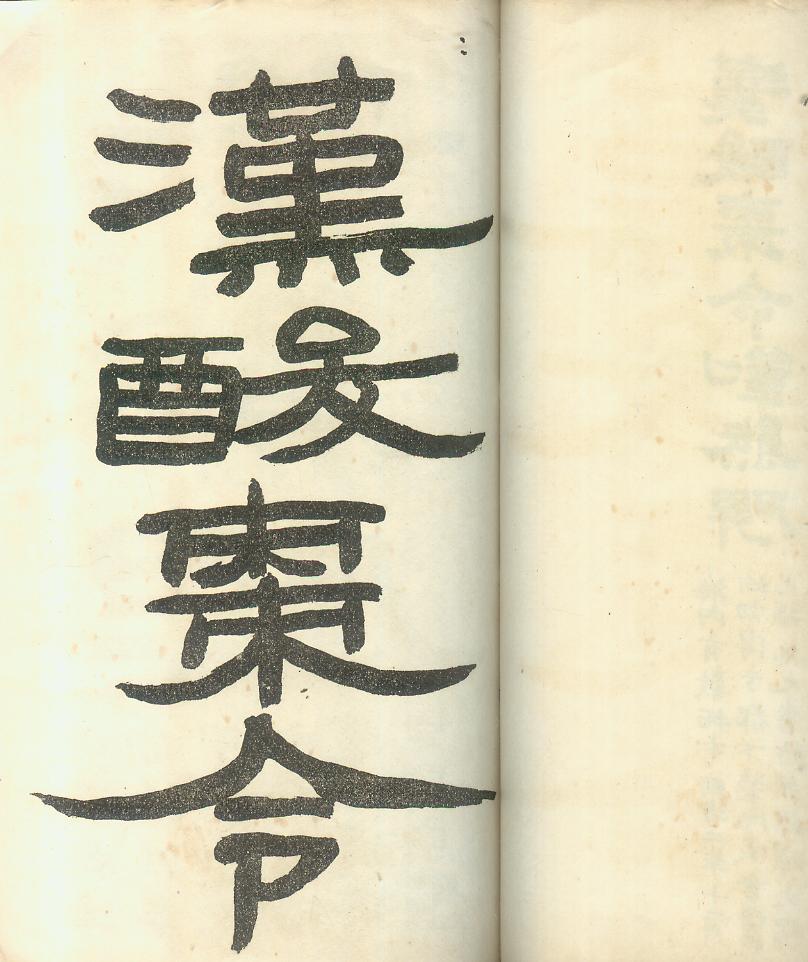 漢酸棗令